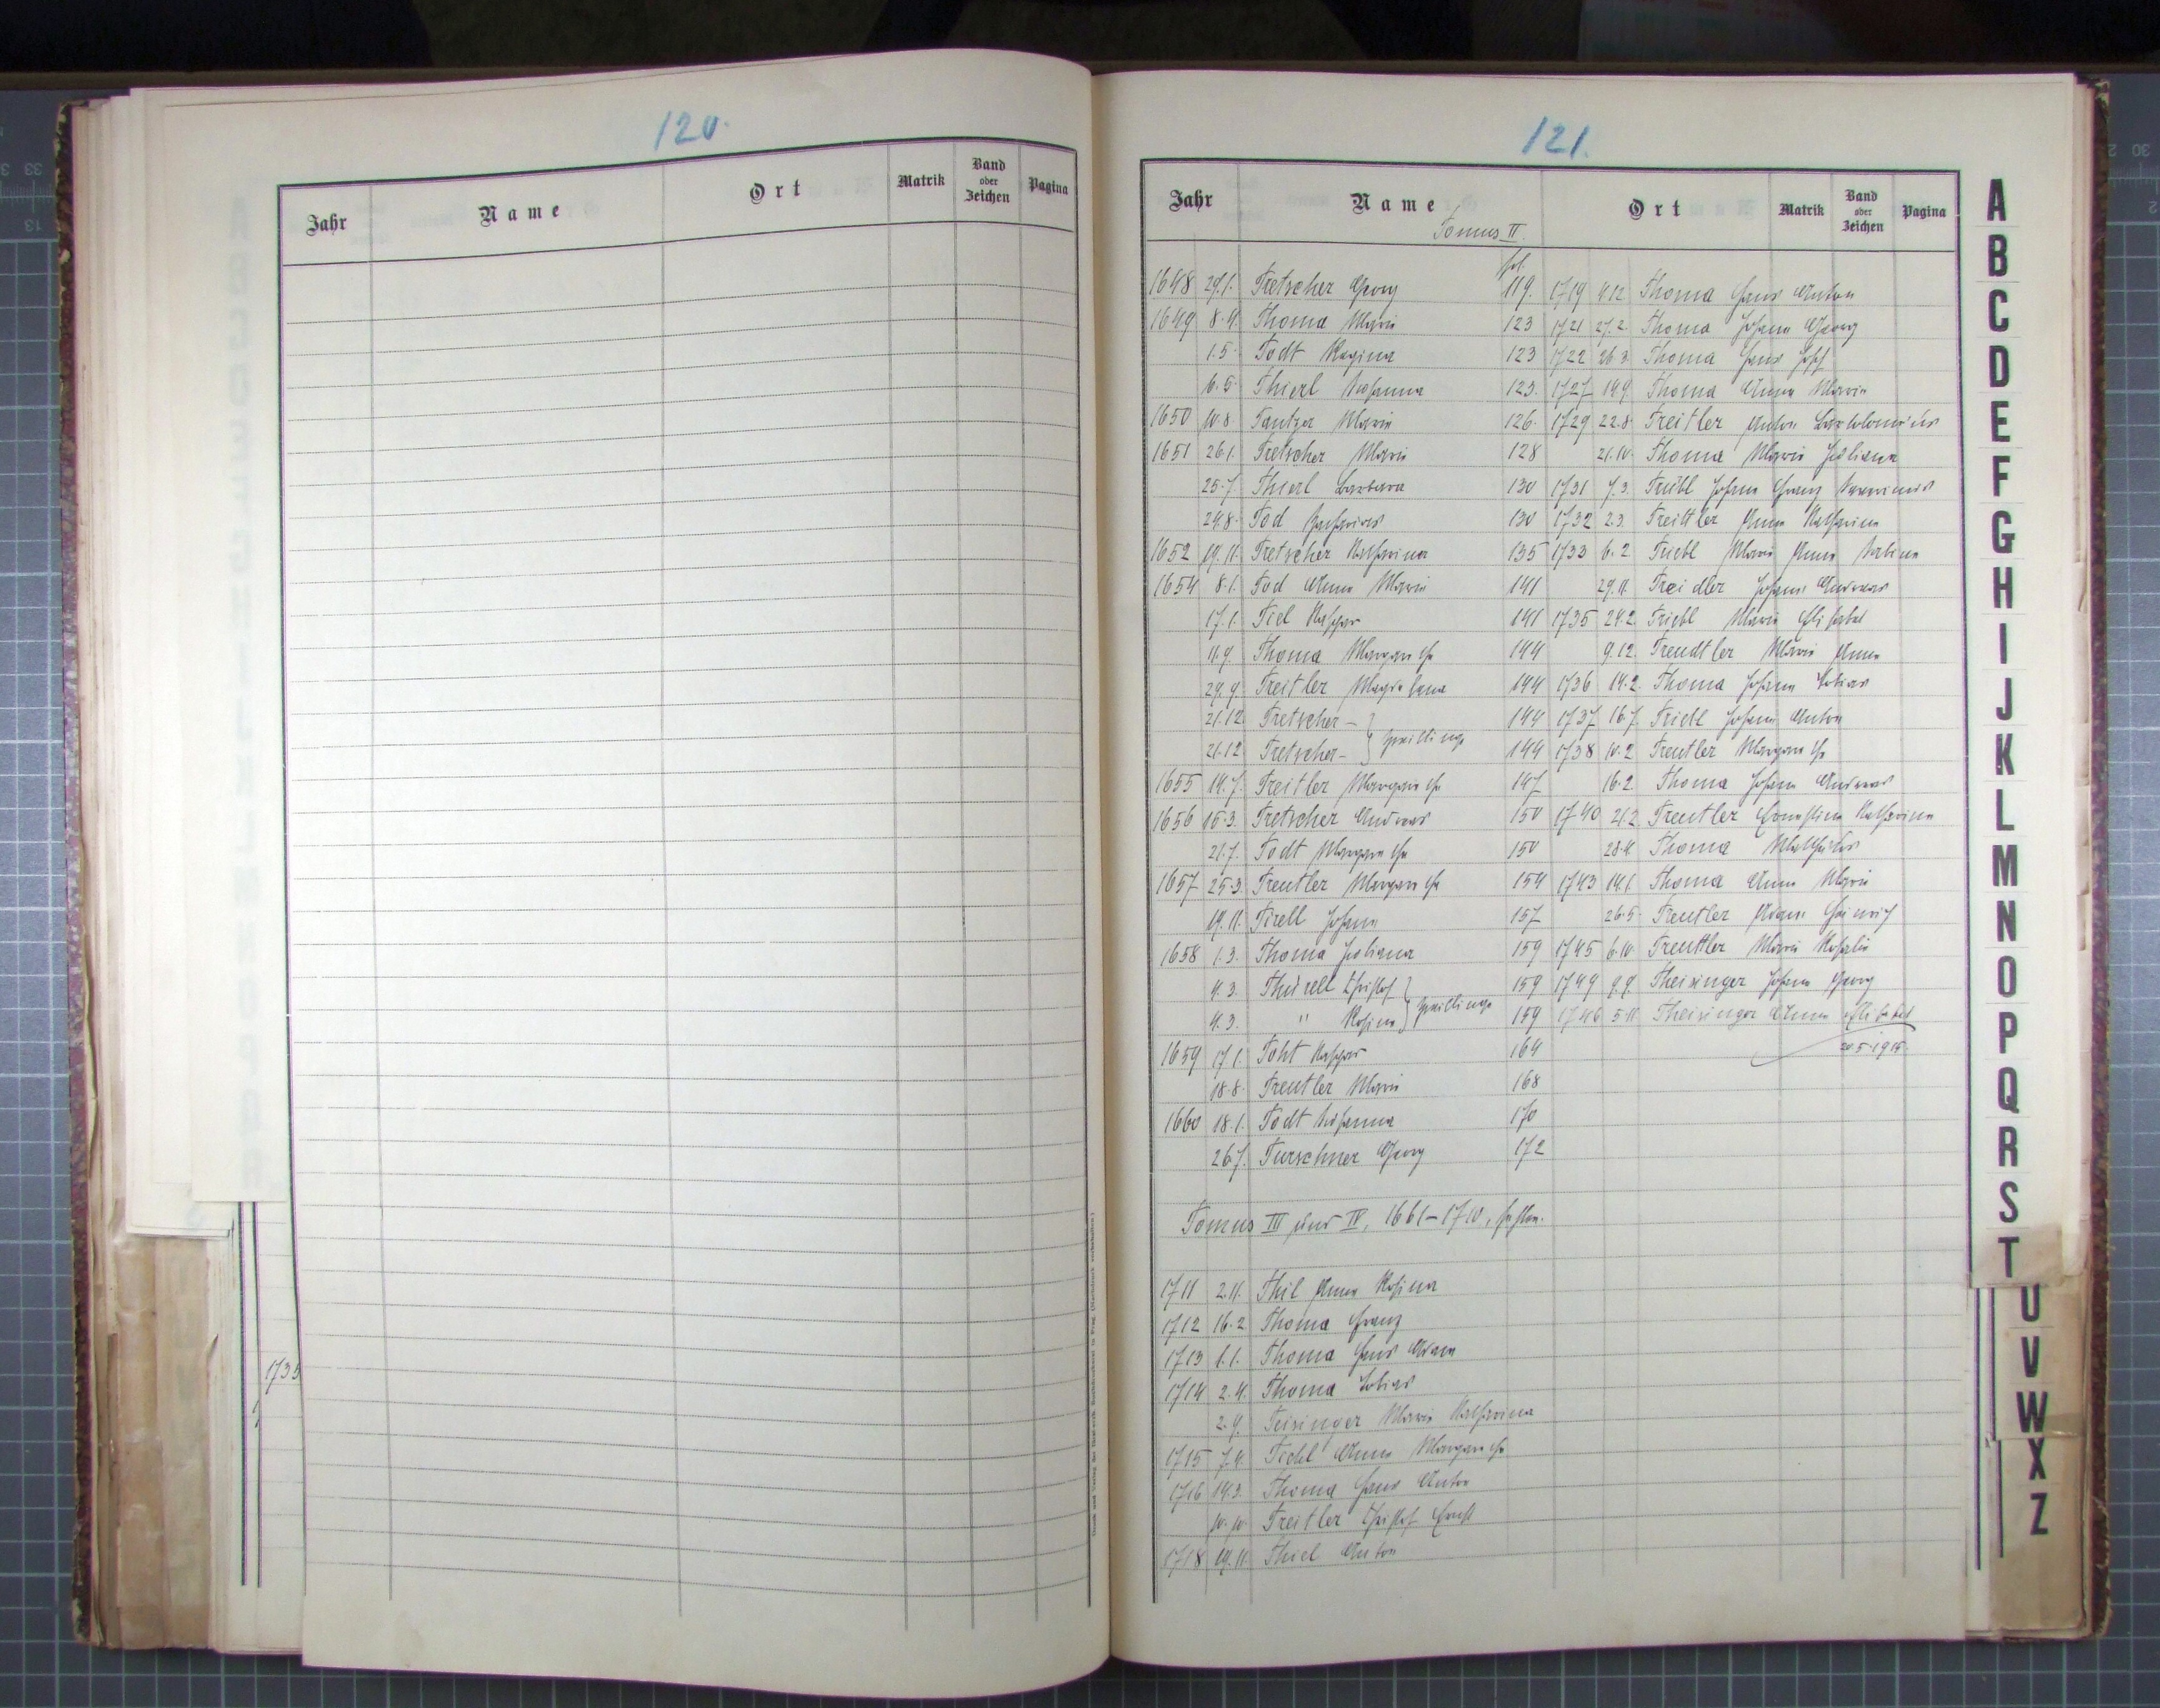 120.
Jahr Name Ort Matrik Band oder Zeichen Pagina
1735
121.
Jahr Name Ort Matrik Band oder Zeichen Pagina
Tomus II.
fol.
1648 29.1. Tretscher Georg 119.
1649 8.4. Thoma Maria 123
1.5. Todt Regina 123
6.5. Thierl Susanna 123.
1650 10.8. Maria 126.
1651 26.1. Tretscher Maria 128
25.7. Thierl Barbara 130
24.8. Tod Zacharias 130
1652 19.11. Tretscher Katharina 135
1654 8.1. Tod Anna Maria 141
17.1. Tiel Kaspar 141
11.9. Thoma Margaretha 144
29.9. Treitler Magdalena 144
21.12. Tretscher – } Zwillinge 144
21.12 Tretscher – 144
1655 14.7. Treitler Margaretha 147
1656 15.3. Tretscher Andreas 150
21.7. Todt Margaretha 150
1657 25.3. Treutler Margaretha 154
19.11. Tirell Johann 157
1658 1.3. Thoma Juliana 159
4.3. Thürell Christof } Zwillinge 159
4.3. " Rosina 159
1659 17.1. Toht Kaspar 164
18.8. Treutler Maria 168
1660 18.1. Todt Susanna 170
26.7. Turschner Georg 172
Tomus III und IV, 1661–1710, fehlen.
1711 2.11. Thil Anna Rosina
1712 16.2. Thoma Franz
1713 1.1. Thoma Hans Adam
1714 2.4. Thoma Tobias
2.9. Teisinger Maria Katharina
1715 7.4. Anna Margaretha
1716 14.3. Thoma Hans Anton
10.10. Treitler Christof Ernst
1718 19.11. Thiel Anton
1719 4.12. Thoma Hans Anton
1721 27.2. Thoma Johann Georg
1722 26.3. Thoma Hans Josef
1727 14.9. Thoma Anna Maria
1729 22.8. Treitler Anton Bartolomäus
21.10. Thoma Maria Juliana
1731 7.3. Johann Franz
1732 2.3. Treittler Anna Katharina
1733 6.2. Triebl Maria Anna Sabina
29.11. Treidler Johann Andreas
1735 24.2. Triebl Maria Elisabet
9.12. Treudtler Maria Anna
1736 14.2. Thoma Johann Tobias
1737 16.7. Johann Anton
1738 10.2 Treutler Margaretha
16.2. Thoma Johann Andreas
1740 21.2. Treutler Ernestina Katharina
28.4. Thoma Matthäus
1743 14.1. Thoma Anna Maria
26.5. Treutler Adam Heinrich
1745 6.10. Treuttler Maria Rosalia
1749 9.9. Theisinger Johann Georg
1746 5.11. Theisinger Anna Elisabet
20.5.1915.
A
B
C
D
E
F
G
H
I
J
K
L
M
N
O
P
Q
R
S
T
U
V
W
X
Z